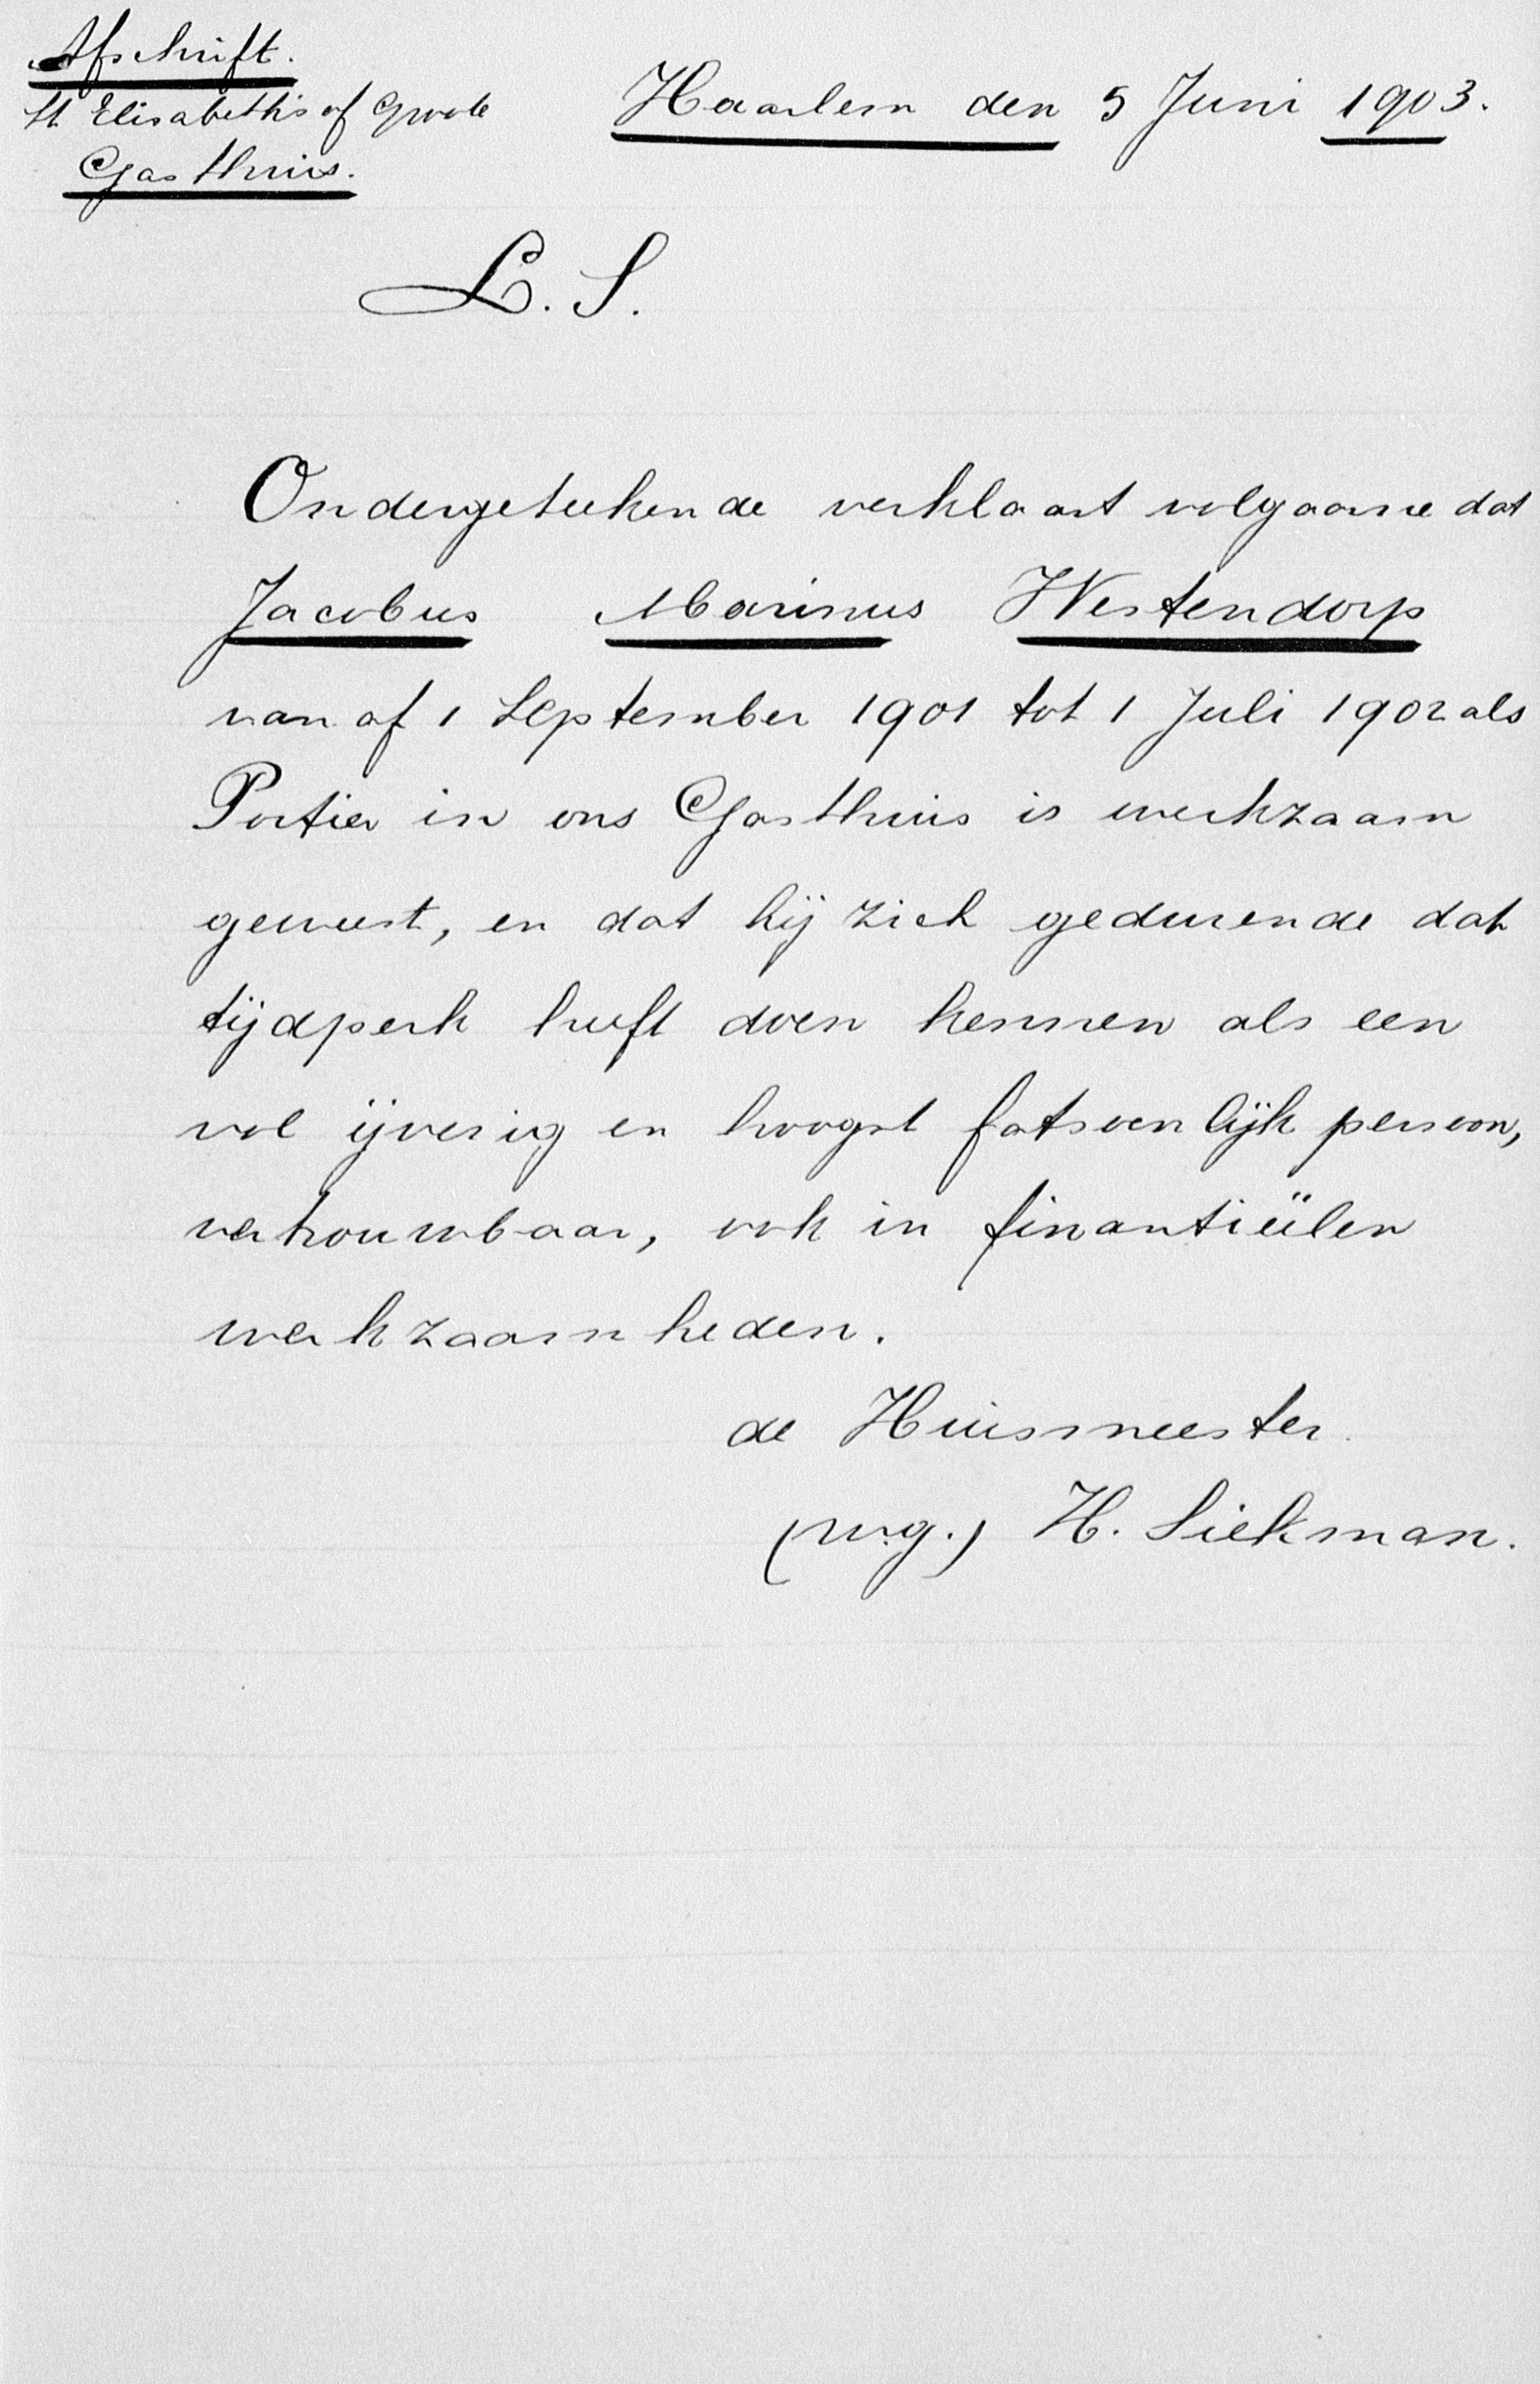 Afschrift.
St. Elisabeth's of Groote
Gasthuis.
Haarlem den 5 Juni 1903.
L. S.
Ondergeteekende verklaart volgaarne dat
Jacobus Marinus Westendorp
van af 1 September 1901 tot 1 Juli 1902 als
Portier in ons Gasthuis is werkzaam
geweest, en dat hij zich gedurende dat
tijdperk heeft doen kennen als een
vol ijverig en hoogst fatsoenlijk persoon,
vertrouwbaar, ook in finantiëelen
werkzaamheden.
de Huismeester.
(w.g.) H. Siekman.